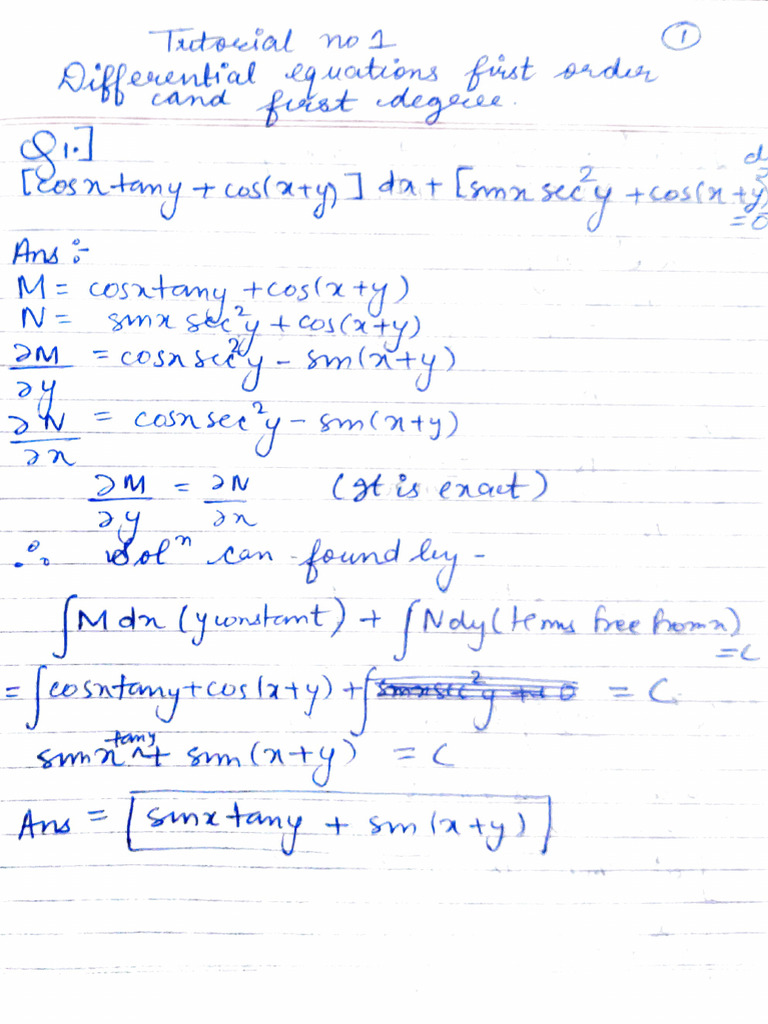 Tutorial no 1
①
Differential equations first order
and first degree.
Q1.]
[cosx tany + cos(x+y)] dx + [sinx sec²y + cos(x+y)
= 0
Ans :-
M = cosx tany + cos(x+y)
N = sinx sec²y + cos(x+y)
∂M/∂y = cosx sec²y - sin(x+y)
∂N/∂x = cosx sec²y - sin(x+y)
∂M/∂y = ∂N/∂x (It is exact)
∴ Solⁿ can found by -
∫M dx (y constant) + ∫N dy (terms free from x)
= C
= ∫cosx tany + cos(x+y) + ∫ = C
sinx tany + sin(x+y) = C
Ans = sinx tany + sin(x+y)